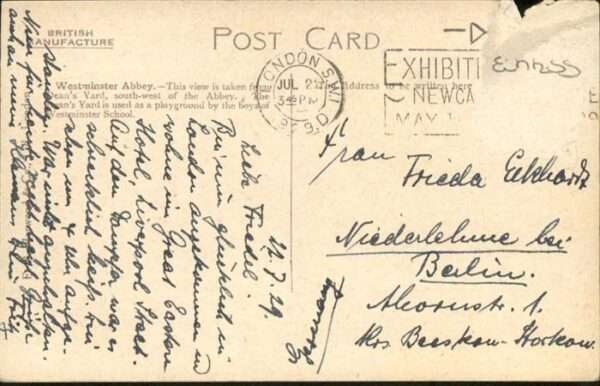 BRITISH
MANUFACTURE
POST CARD
Westminster Abbey.—This view is taken from
Dean's Yard, south-west of the Abbey. The
Dean's Yard is used as a playground by the boys of
Westminster School.
Address to be written here
LONDON S.W.1
JUL 2
3 PM
EXHIBITI
NEWCA
MAY 1
22.7.29.
Liebe Friedel!
Bin nun glücklich in
London angekommen u.
wohne im Great Eastern
Hotel, Liverpool Street.
Auf dem Dampfer war es
schrecklich heiß. Bin
schon um 4 Uhr aufge-
standen. War nicht auszuhalten.
Nun für heute recht herzl. Grüße
auch an
Dein
Germany
Frau Frieda Eckhardt
Niederlehme bei
Berlin.
Ahornstr. 1.
Krs. Beeskow-Storkow.